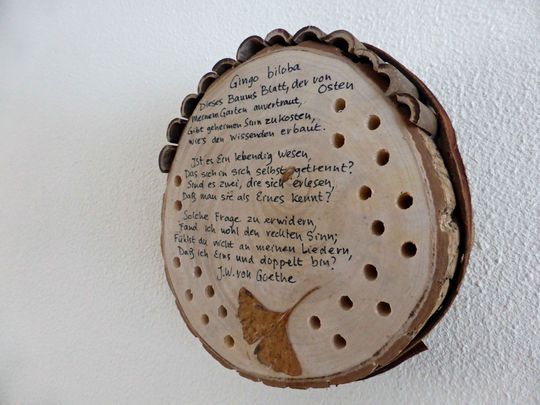 Gingo biloba
Dieses Baums Blatt, der von
Osten
Meinem Garten anvertraut,
Gibt geheimen Sinn zu kosten,
wie's den Wissenden erbaut.
Ist es Ein lebendig Wesen,
Das sich in sich selbst getrennt?
Sind es zwei, die sich erlesen,
Daß man sie als Eines kennt?
Solche Frage zu erwidern,
Fand ich wohl den rechten Sinn;
Fühlst du nicht an meinen Liedern,
Daß ich Eins und doppelt bin?
J.W. von Goethe